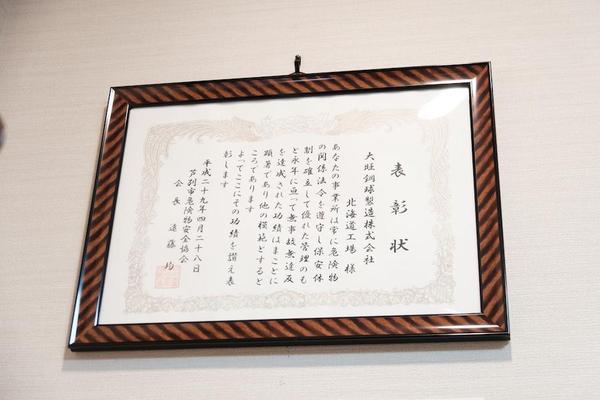 表彰状
大旺鋼球製造株式会社
北海道工場 様
あなたの事業所は常に危険物
の関係法令を遵守し保安体
制を確立して優れた管理のも
と永年に亘って無事故無違反
を達成された功績はまことに
顕著であり他の模範とすると
ころであります
よってここにその功績を讃え表
彰します
平成二十九年四月二十八日
芦別市危険物安全協会
会長 遠藤 均